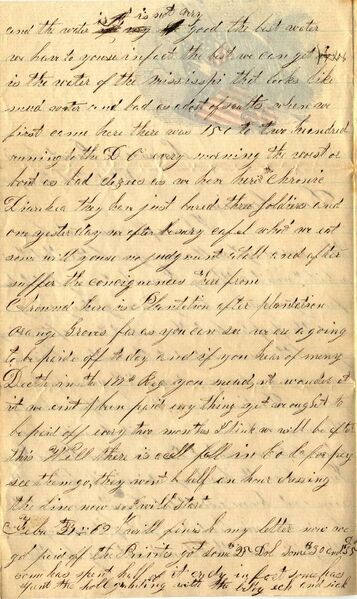 and the water is not very good the best water
we have to youse infact the best we can get
is the water of the mississpi that looks like
mud water and bad as a dost of salts when we
first came here there was 150 to two hundred
runing to the D C every morning the worst
bout as bad dizeies as we hav here is Chronic
Diarhea they hav just bured three soldiers and
one yesterday we after be very cafel what we eat
some will youse no judgment atall and after
suffer the conciquences
Around here is Plantation after plantation
orange groves far as you can see we are a going
to be paid off to day and if you hear of meny
Deeth in the Reg you neadnt wonder at
it we aint ben paid any thing yet we ought to
be paid off evry two months I think we will be after
this Well there is call fall in Co D for pay
see them go they wont be half an hour
the line now so I will start
I will finish my letter now we
got paid of the Privates got some 25 Dol some 30 and
some has spent half of it allredy in fact some has
spent the holl